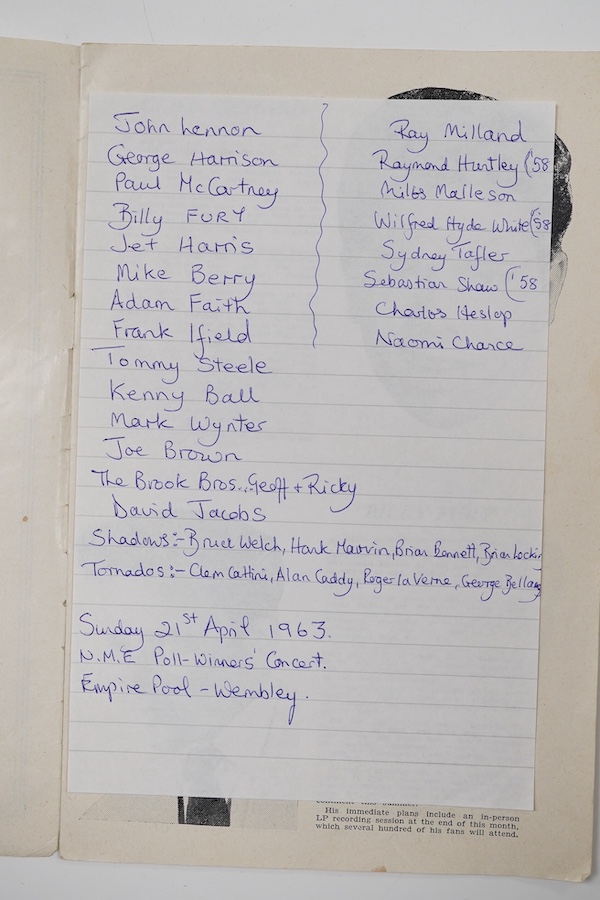 John Lennon
George Harrison
Paul McCartney
Billy FURY
Jet Harris
Mike Berry
Adam Faith
Frank Ifield
Tommy Steele
Kenny Ball
Mark Wynter
Joe Brown
The Brook Bros.. Geoff + Ricky
David Jacobs
Ray Milland
Raymond Huntley ('58
Miles Malleson
Wilfred Hyde White ('58
Sydney Tafler
Sebastian Shaw ('58
Charles Heslop
Naomi Chance
Shadows:- Bruce Welch, Hank Marvin, Brian Bennett, Brian Locking
Tornados:- Clem Cattini, Alan Caddy, Roger la Verne, George Bellamy
Sunday 21st April 1963.
N.M.E Poll-Winners' Concert.
Empire Pool - Wembley.
His immediate plans include an in-person
LP recording session at the end of this month,
which several hundred of his fans will attend.